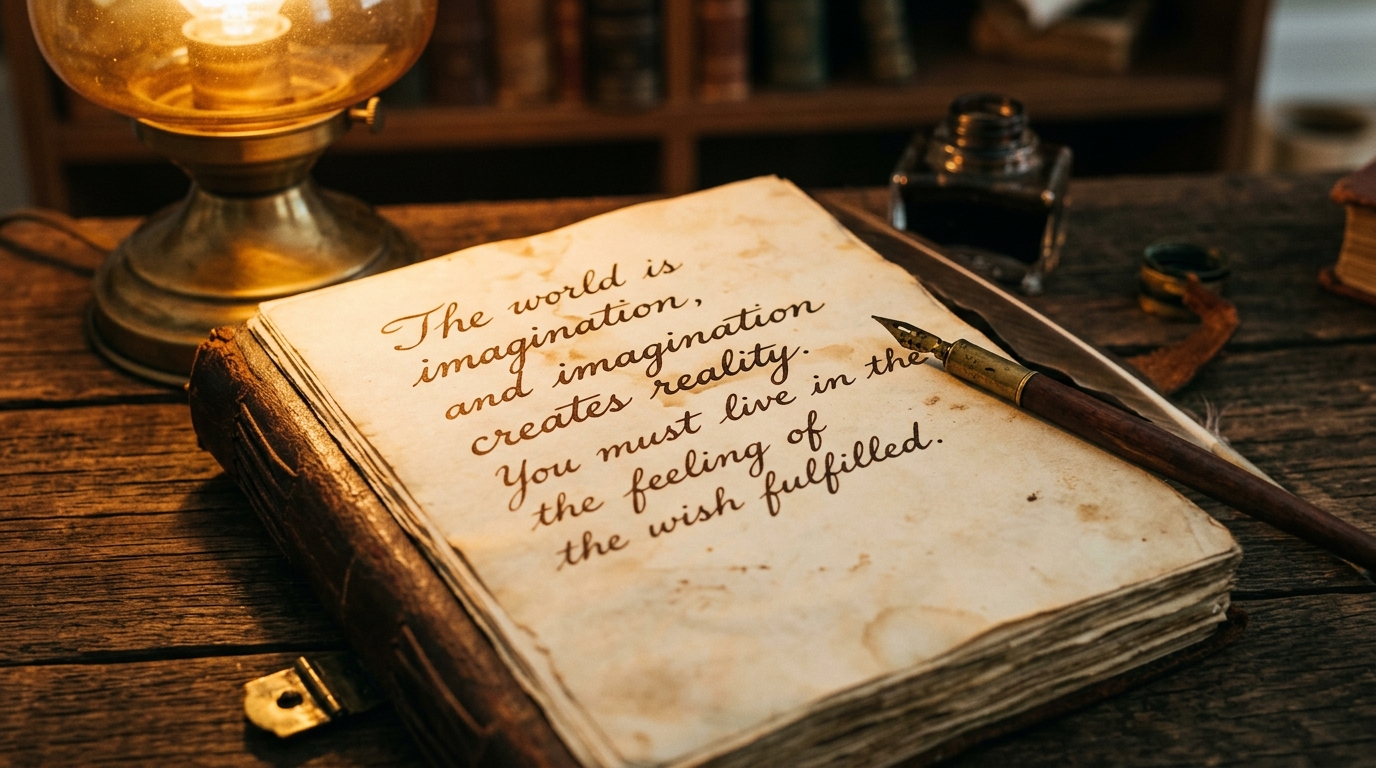 The world is
imagination,
and imagination
creates reality.
You must live in the
the feeling of
the wish fulfilled.